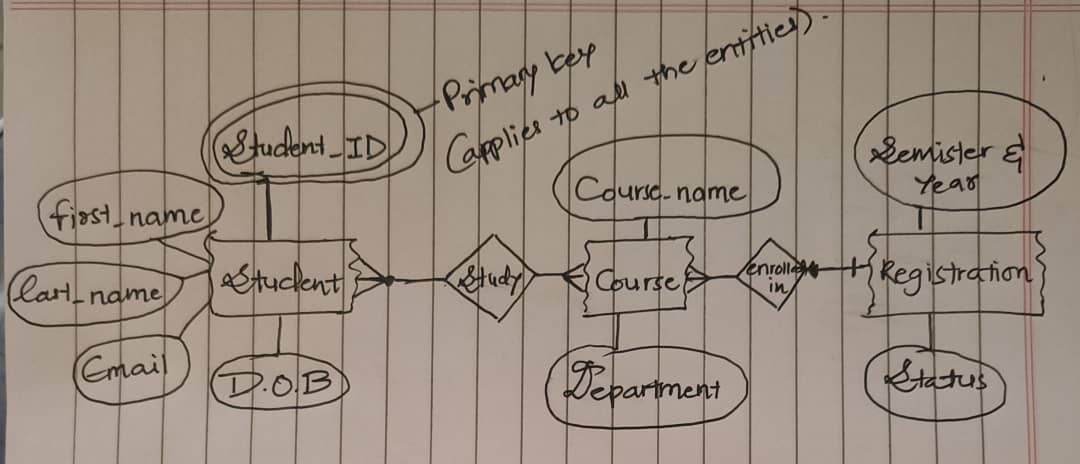 Primary key
(applies to all the entities).
Student_ID
first_name
last_name
Email
D.O.B
Student
Study
Course_name
Course
Department
enrolled
in
Semister &
Year
Registration
Status